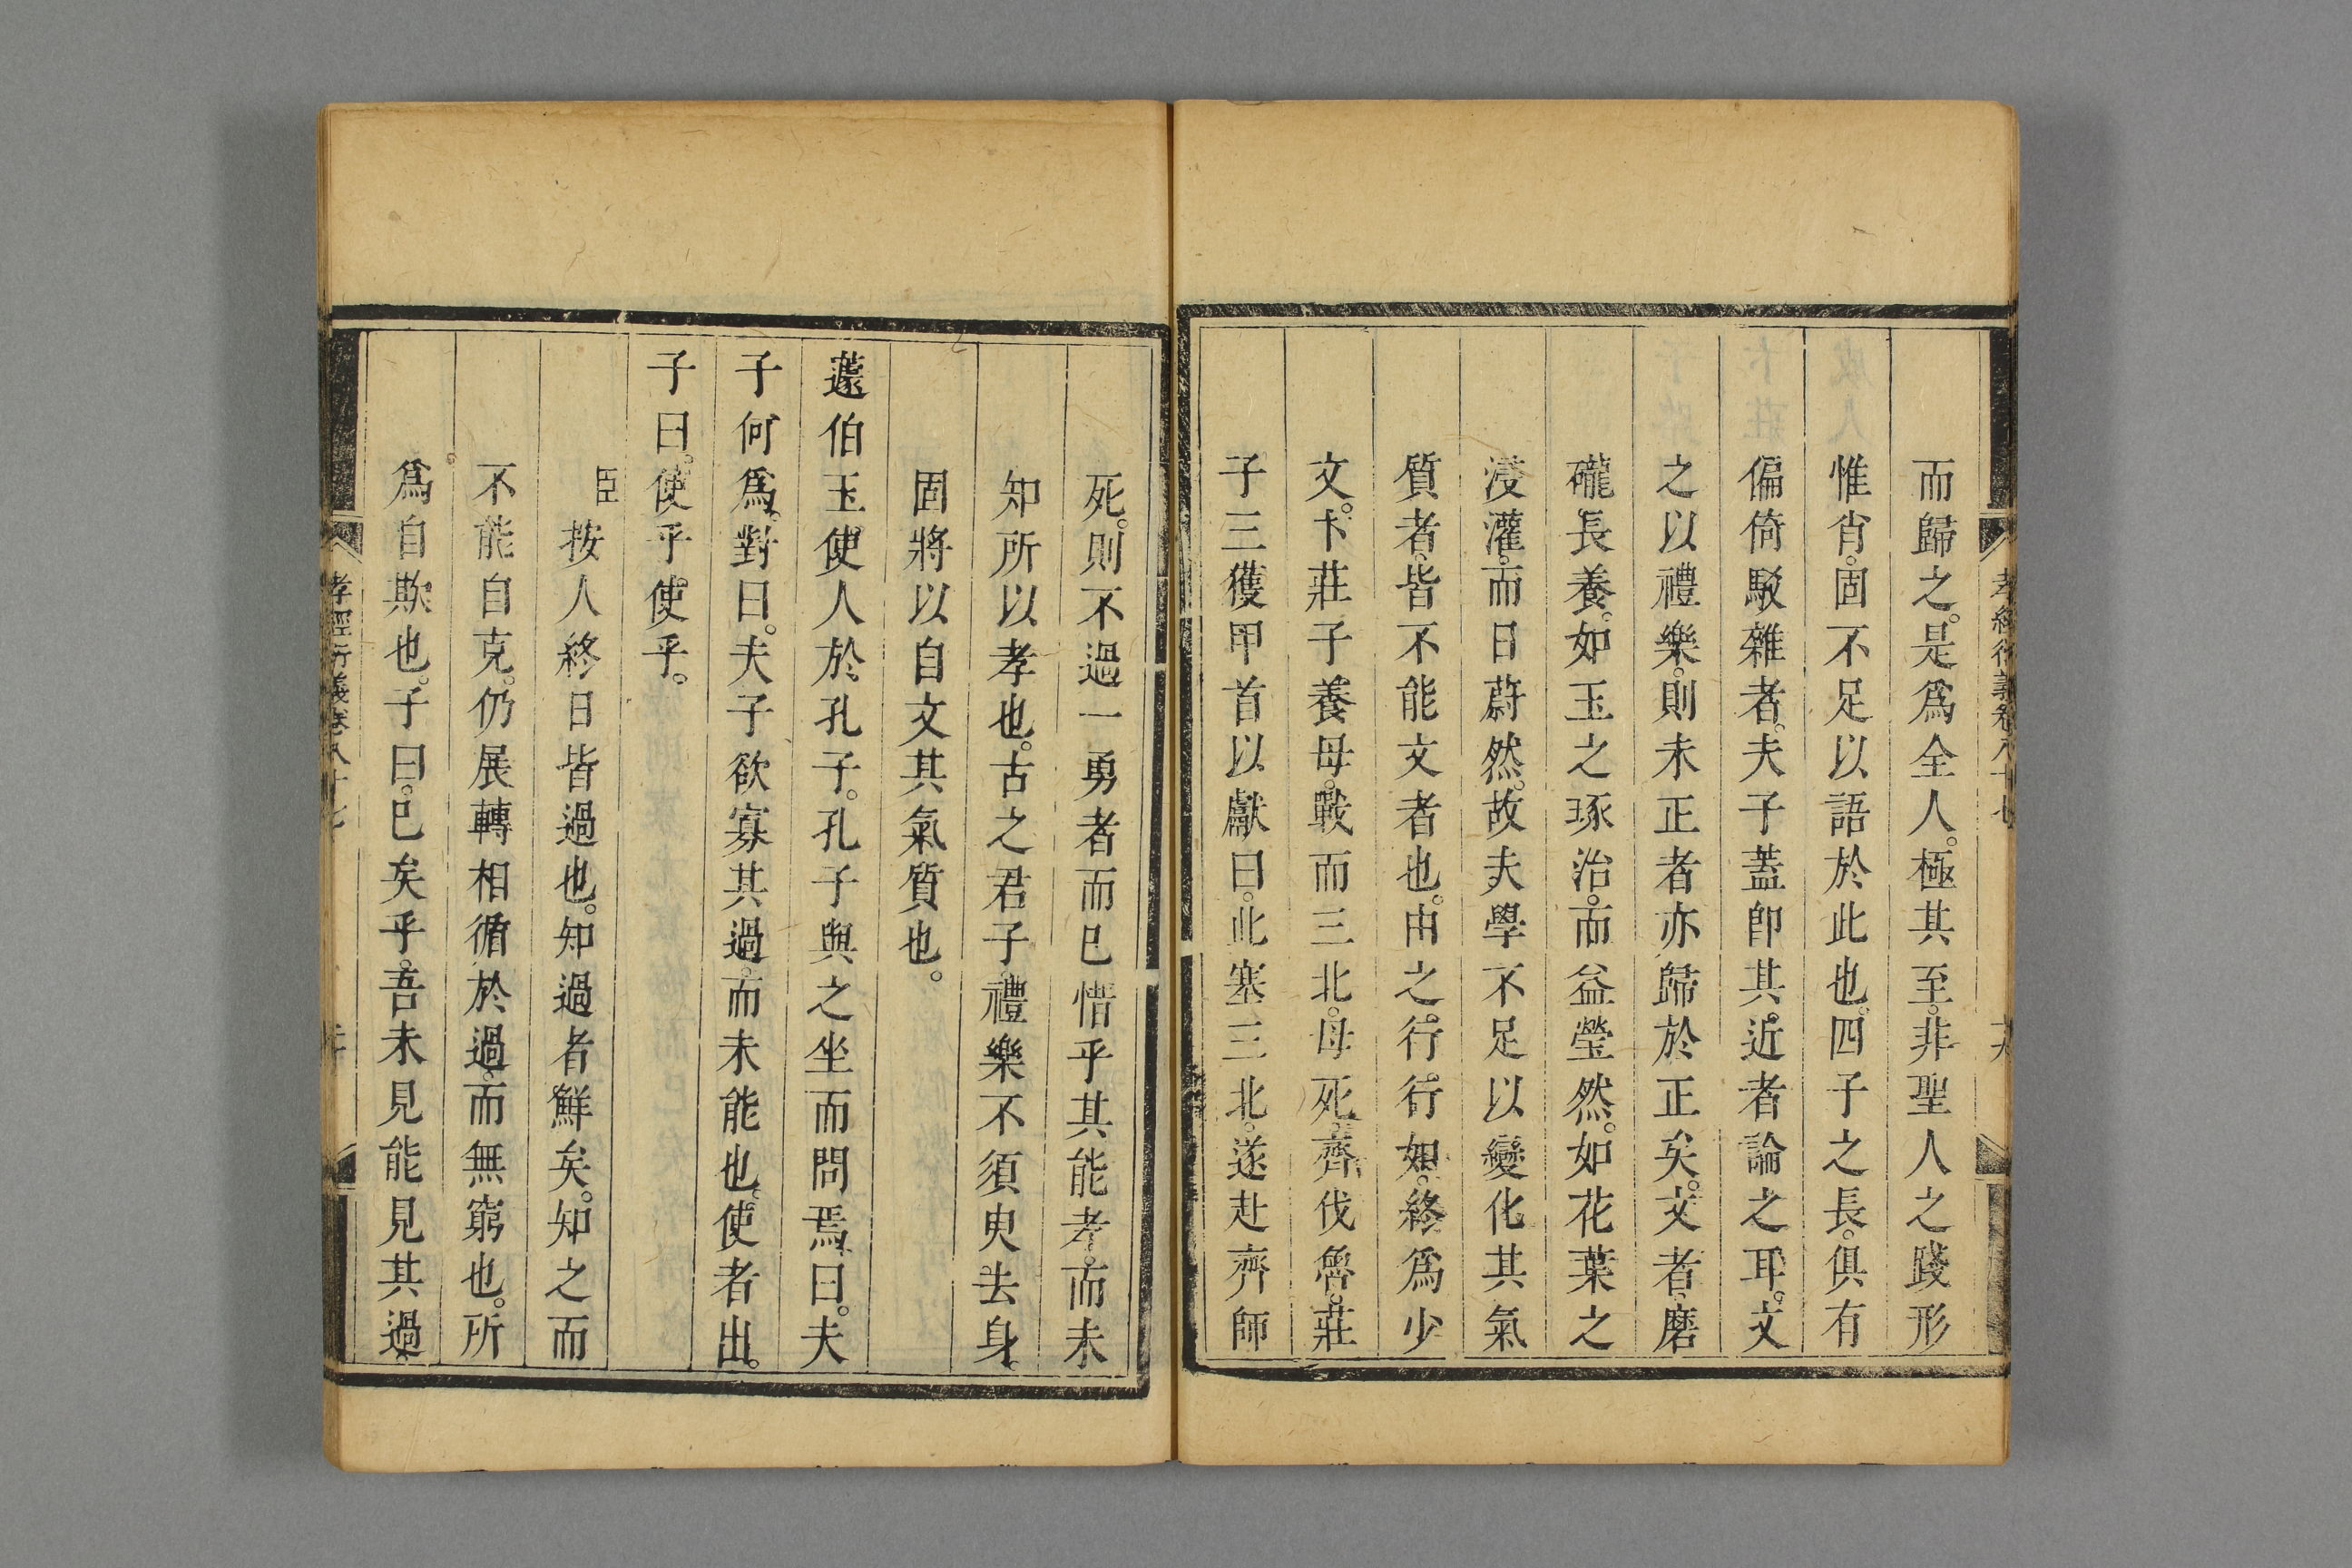 而歸之。是爲全人。極其至。非聖人之踐形
惟肖。固不足以語於此也。四子之長。俱有
偏倚駁雜者。夫子蓋卽其近者論之耳。文
之以禮樂。則未正者亦歸於正矣。文者。磨
礲長養。如玉之琢治。而益瑩然。如花葉之
浸灌。而日蔚然。故夫學不足以變化其氣
質者。皆不能文者也。由之行行如。終爲少
文。卞莊子養母。戰而三北。母死。齊伐魯。莊
子三獲甲首以獻曰。此塞三北。遂赴齊師
死。則不過一勇者而已惜乎其能孝。而未
知所以孝也。古之君子。禮樂不須臾去身。
固將以自文其氣質也。
蘧伯玉使人於孔子。孔子與之坐而問焉。曰。夫
子何爲。對曰。夫子欲寡其過。而未能也。使者出。
子曰。使乎使乎。
臣按人終日皆過也。知過者鮮矣。知之而
不能自克。仍展轉相循於過。而無窮也。所
爲自欺也。子曰。已矣乎。吾未見能見其過。
孝經衍義卷八十七